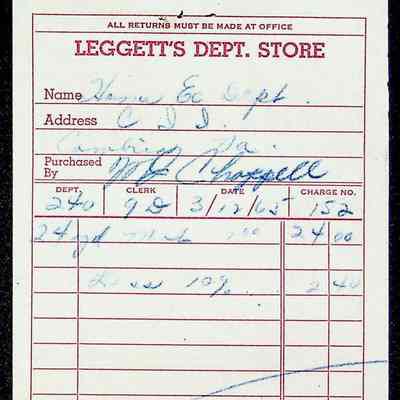 ALL RETURNS MUST BE MADE AT OFFICE
LEGGETT'S DEPT. STORE
Name Home Ec Dept.
Address C I I.
Va.
Purchased By Chappell
DEPT. CLERK DATE CHARGE NO.
240 9D 3/12/65 152
24 yd 100 24 00
Less 10% 2 40